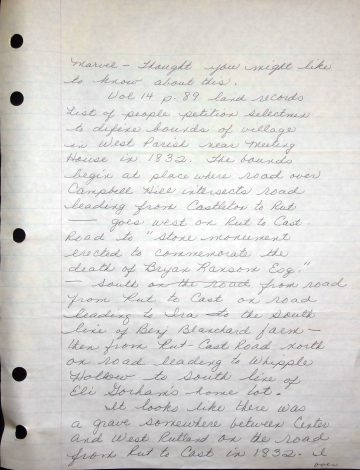 Marvel - Thought you might like
to know about this.
Vol 14 p. 89 land records
List of people petition Selectmen
to define bounds of village
in West Parish near Meeting
House in 1832. The bounds
begin at place where road over
Campbell Hill intersects road
leading from Castleton to Rut
— goes west on Rut to Cast
Road to "stone monument
erected to commemorate the
death of Bryan Ransom Esq."
— South on the road from road
from Rut to Cast on road
leading to Ira to the South
line of Benj Blanchard farm -
then from Rut-Cast Road north
on road leading to Whipple
Hollow to South line of
Eli Gorham's home lot.
It looks like there was
a grave somewhere between Center
and West Rutland on the road
from Rut to Cast in 1832. I
over